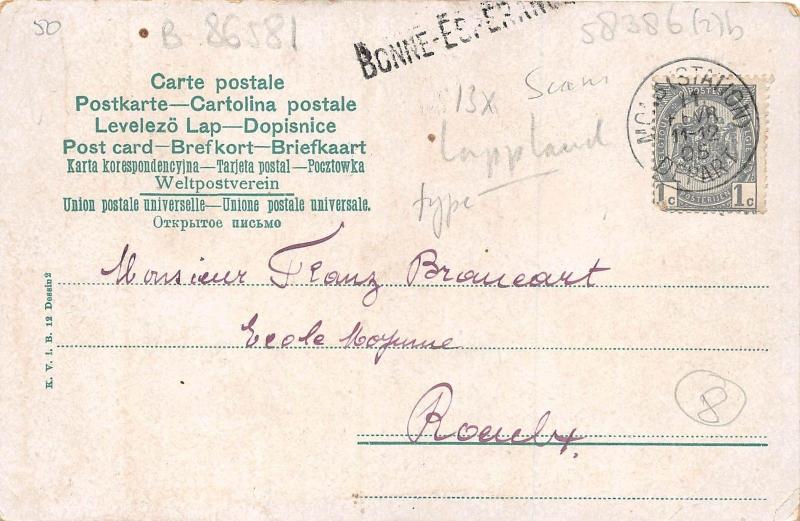 50
B 86581
BONNE-ESPÉRANCE
58386(2)b
Carte postale
Postkarte—Cartolina postale
Levelező Lap—Dopisnice
Post card—Brefkort—Briefkaart
Karta korespondencyjna—Tarjeta postal—Pocztowka
Weltpostverein
Union postale universelle—Unione postale universale.
Открытое письмо
13x Scans
Lappland
type
(STATION)
11
FEVR
11-12
05
DEPART
POSTES
1c 1c
Monsieur Franz Brancart
Ecole Moyenne
Roeulx
8
K. V. i. B. 12 Dessin 2